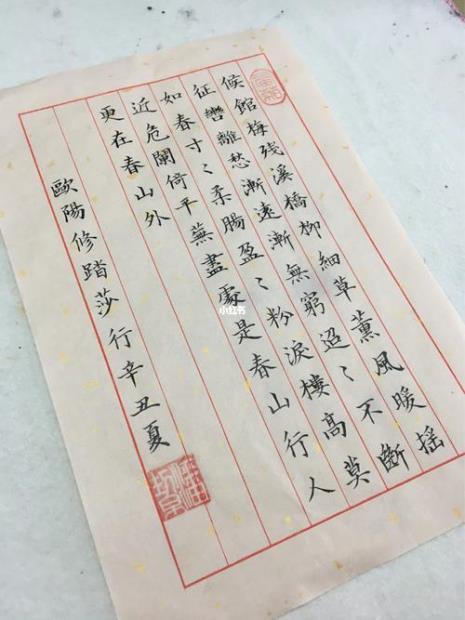 候館梅残溪橋柳細草薰風暖摇
征轡離愁漸遠漸無窮迢〻不斷
如春寸〻柔腸盈〻粉淚樓高莫
近危闌倚平蕪盡處是春山行人
更在春山外
歐陽修踏莎行辛丑夏
小红书